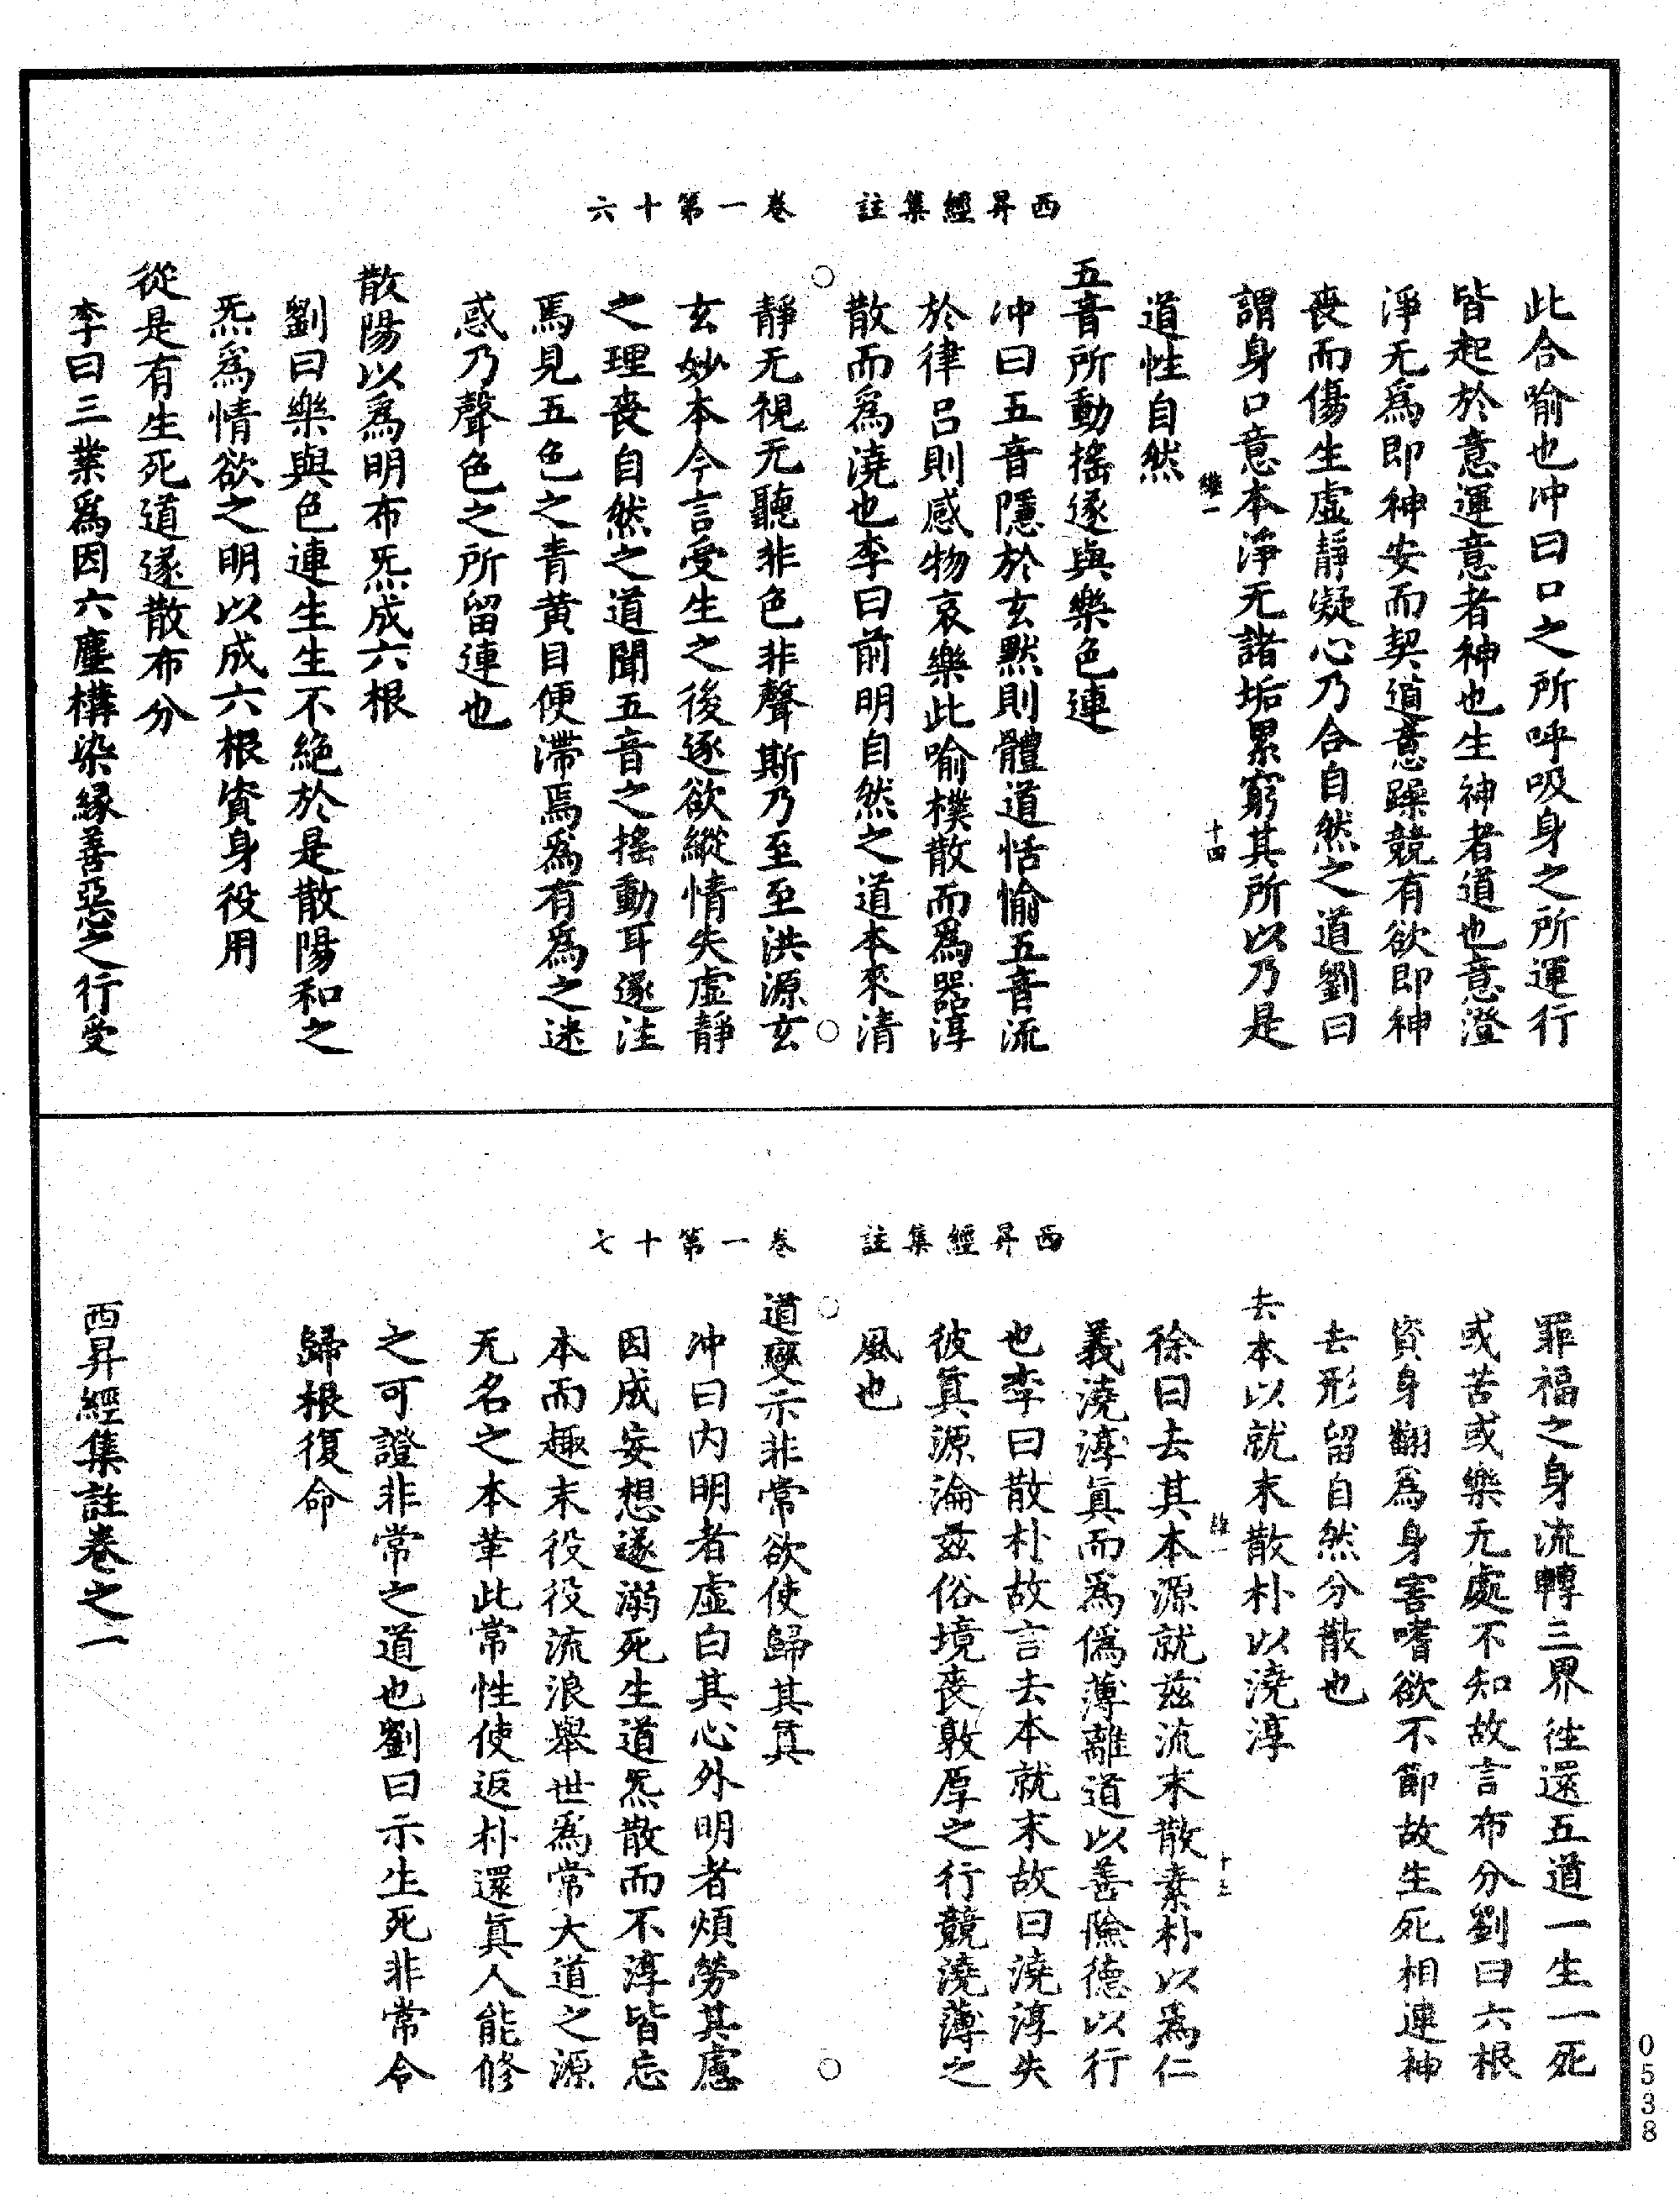 西昇經集註 卷一第十六
此合喻也冲曰口之所呼吸身之所運行
皆起於意運意者神也生神者道也意澄
淨无爲即神安而契道意躁競有欲即神
喪而傷生虛靜凝心乃合自然之道劉曰
謂身口意本淨无諸垢累窮其所以乃是
維一 十四
道性自然
五音所動搖遂與樂色連
冲曰五音隱於玄默則體道恬愉五音流
於律呂則感物哀樂此喻樸散而爲器淳
散而爲澆也李曰前明自然之道本來清
靜无視无聽非色非聲斯乃至至洪源玄
玄妙本今言受生之後逐欲縱情失虛靜
之理喪自然之道聞五音之搖動耳遂注
焉見五色之青黄目便滯焉爲有爲之迷
惑乃聲色之所留連也
散陽以爲明布炁成六根
劉曰樂與色連生生不絶於是散陽和之
炁爲情欲之明以成六根資身役用
從是有生死道遂散布分
李曰三業爲因六塵構染縁善惡之行受
西昇經集註 卷一第十七
罪福之身流轉三界往還五道一生一死
或苦或樂无處不知故言布分劉曰六根
資身翻爲身害嗜欲不節故生死相連神
去形留自然分散也
去本以就末散朴以澆淳
維一
徐曰去其本源就兹流末散素朴以爲仁
義澆淳眞而爲僞薄離道以善險德以行
也李曰散朴故言去本就末故曰澆淳失
彼眞源淪兹俗境喪敦厚之行競澆薄之
風也
道變示非常欲使歸其眞
冲曰内明者虛白其心外明者煩勞其慮
因成妄想遂溺死生道炁散而不淳皆忘
本而趣末役役流浪舉世爲常大道之源
无名之本革此常性使返朴還眞人能修
之可證非常之道也劉曰示生死非常令
歸根復命
西昇經集註卷之一
0538